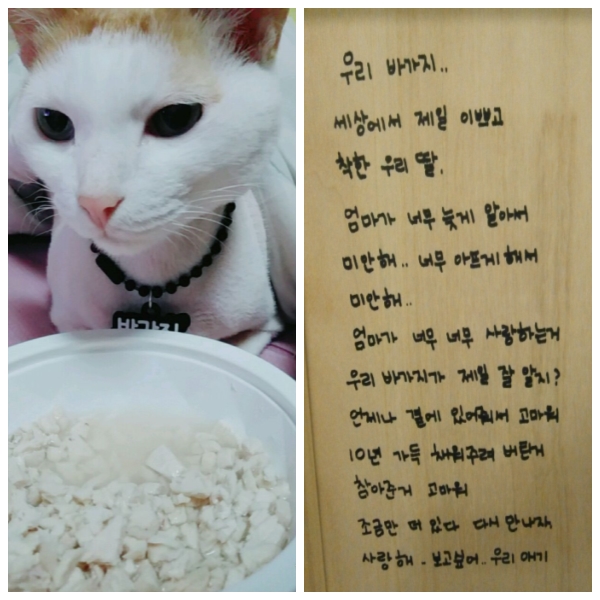 바가지
우리 바가지..
세상에서 제일 이쁘고
착한 우리 딸.
엄마가 너무 늦게 알아서
미안해.. 너무 아프게 해서
미안해..
엄마가 너무 너무 사랑하는거
우리 바가지가 제일 잘 알지?
언제나 곁에 있어줘서 고마워
10년 가득 채워주려 버틴거
참아준거 고마워
조금만 더 있다 다시 만나자.
사랑해 - 보고싶어.. 우리 애기